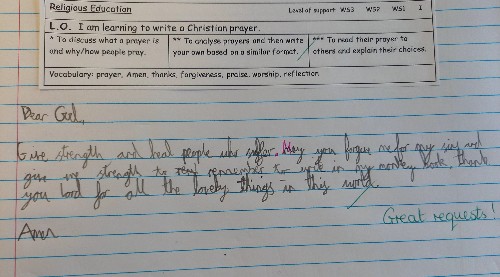 Religious Education
Level of support WS3 WS2 WS1 I
L.O. I am learning to write a Christian prayer.
* To discuss what a prayer is and why/how people pray.
** To analyse prayers and then write your own based on a similar format.
*** To read their prayer to others and explain their choices.
Vocabulary: prayer, Amen, thanks, forgiveness, praise, worship, reflection.
Dear God,
Give strength and heal people who suffer. May you forgive me for my sins and
give me strength to remember to write in my monkey book. thank
you lord for all the lovely things in this world.
Great requests!
Amen